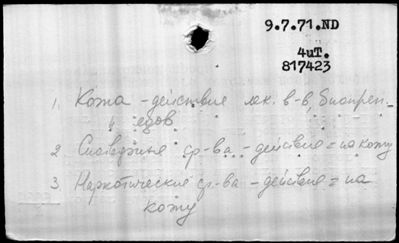 9.7.71.ND
4иТ.
817423
1. Кожа - действие лек. в-в,
" " ядов
2 ср-ва - действие = на кожу
3. Наркотические ср-ва - действие = на
кожу